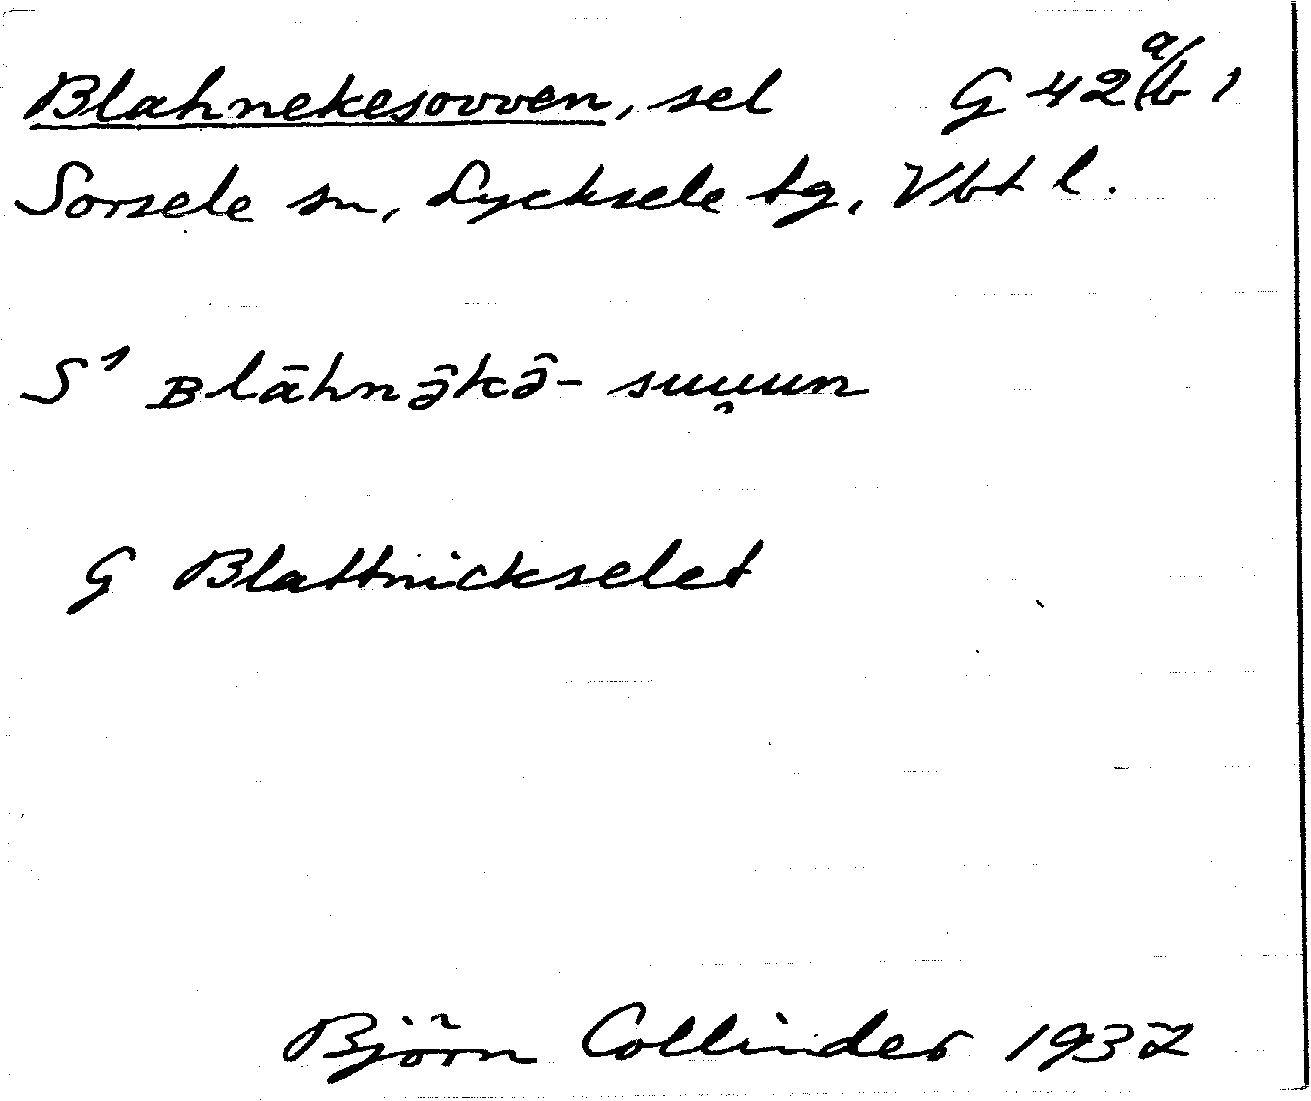 Blahnekesovven, sel G 42 a/b 1
Sorsele sn, Lycksele tg, Vbt l.
S¹ ʙlāhnə̂kə̂- suu̯un
G Blattnickselet
Björn Collinder 1937